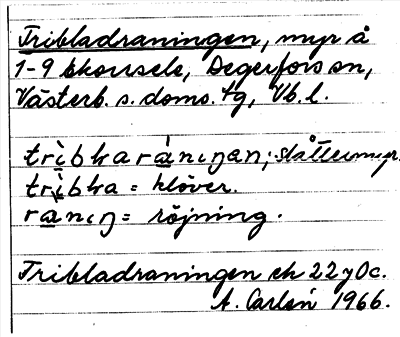 Tribladraningen, myr å
1-9 bkousele, Degerfors sn,
Västerb. s. doms. tg, Vb. l.
trìbharánıŋan; slåttermyr.
trìbha = klöver.
ranıŋ = röjning.
Tribladraningen ek 22y0c.
A. Carlén 1966.